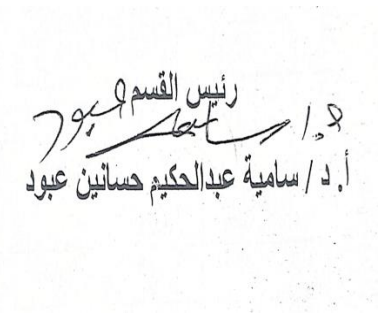 رئيس القسم
أ. د / سامية عبدالحكيم حسانين عبود